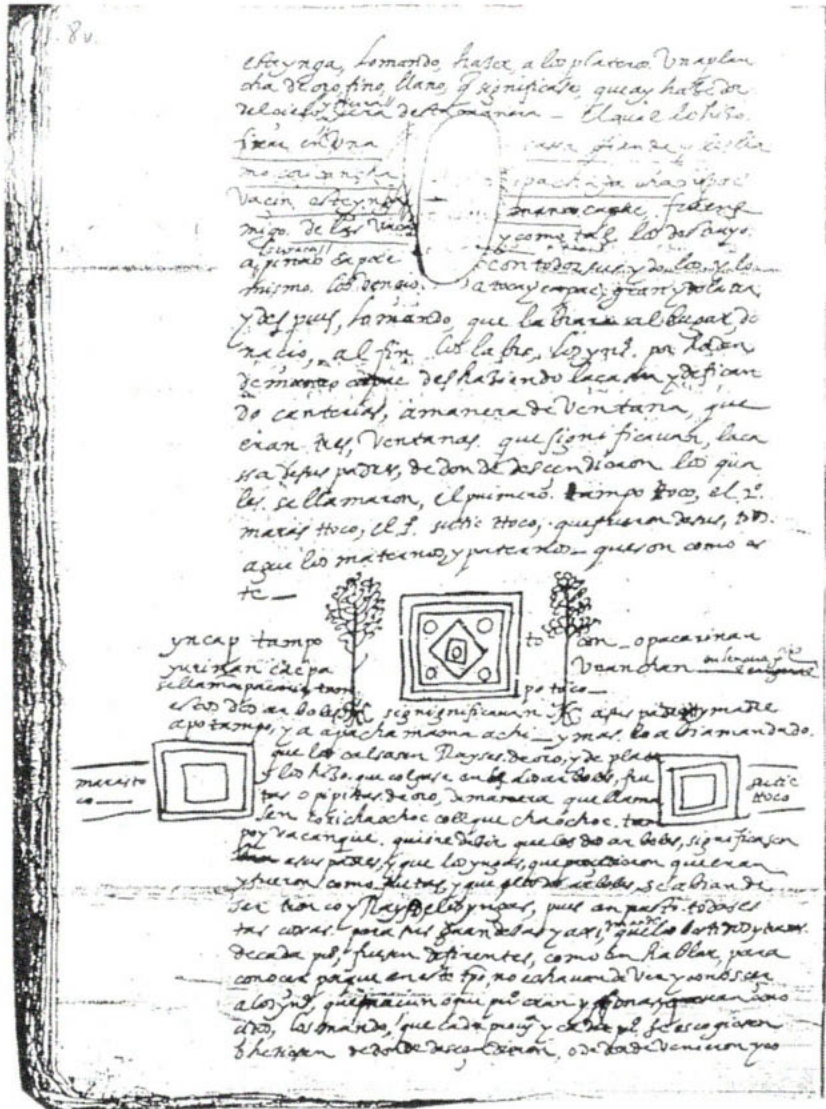 8v.
este ynga, lo mando, hazer, a los plateros Una plan
cha de oro fino, llano, q significase, que ay hazedor
del cielo y tierra
era desta manera — El qual lo hizo
fixar en Una casa grande y les lla
mo coricancha pachayachachipac
Vacin este ynga manco capac fue ene
migo de las Vacas y como tal los destruyo
a pinao capac con todos sus ydolos y lo
mismo los vencio a tocay capac, gran ydolatra
y despues, lo mando, que labrara al lugar, do
nacio, al fin los labro, los yndº por horden
de manco capac deshaziendo la casa y edifican
do canterias, a manera de Ventana, que
eran tres, Ventanas que significavan, la ca
ssa de sus padres, de donde descendieron los qua
les se llamaron, el primero tampo ttoco, el 2º
maras ttoco, el 3º sutic ttoco, que fueron de sus,
aguelos maternos, y paternos — que son como es
te —
yncap tampo to con — o pacarinan
yurinan cacpa Unanchan
se llama pacarina tam po toco —
estos dos arboles significavan a sus padre y madre
apo tampo, y a pachamama achi — y mas lo abia mandado
que los calsasen Rayses de oro, y de plata
y los hizo que colgase en los dos arboles, fru
tas o pipitas de oro, de manera que llama
sen corichaochoc collquechaochoc tam
po y racan que quiere dezir que los dos arboles, significasen
a sus padres, y que los yngas, que procedieron que eran
y fueron como frutas, y que los dos arboles, se abian de
ser tronco y Rayz de los yngas, pues an puesto todas es
tas cosas para sus grandesas y assi, que los bestidos y trajes
de cada pueº, fuesen diferentes, como en hablar, para
conocer porque en este tpo, no echavan de Ver y conoscer
a los yndº, que nacion o que pueº eran y
los mando, que cada provª y cada pueº se escogiesen
o hiziesen de donde descendieron, o de donde venieron y co
maras to
co —
sutic
ttoco